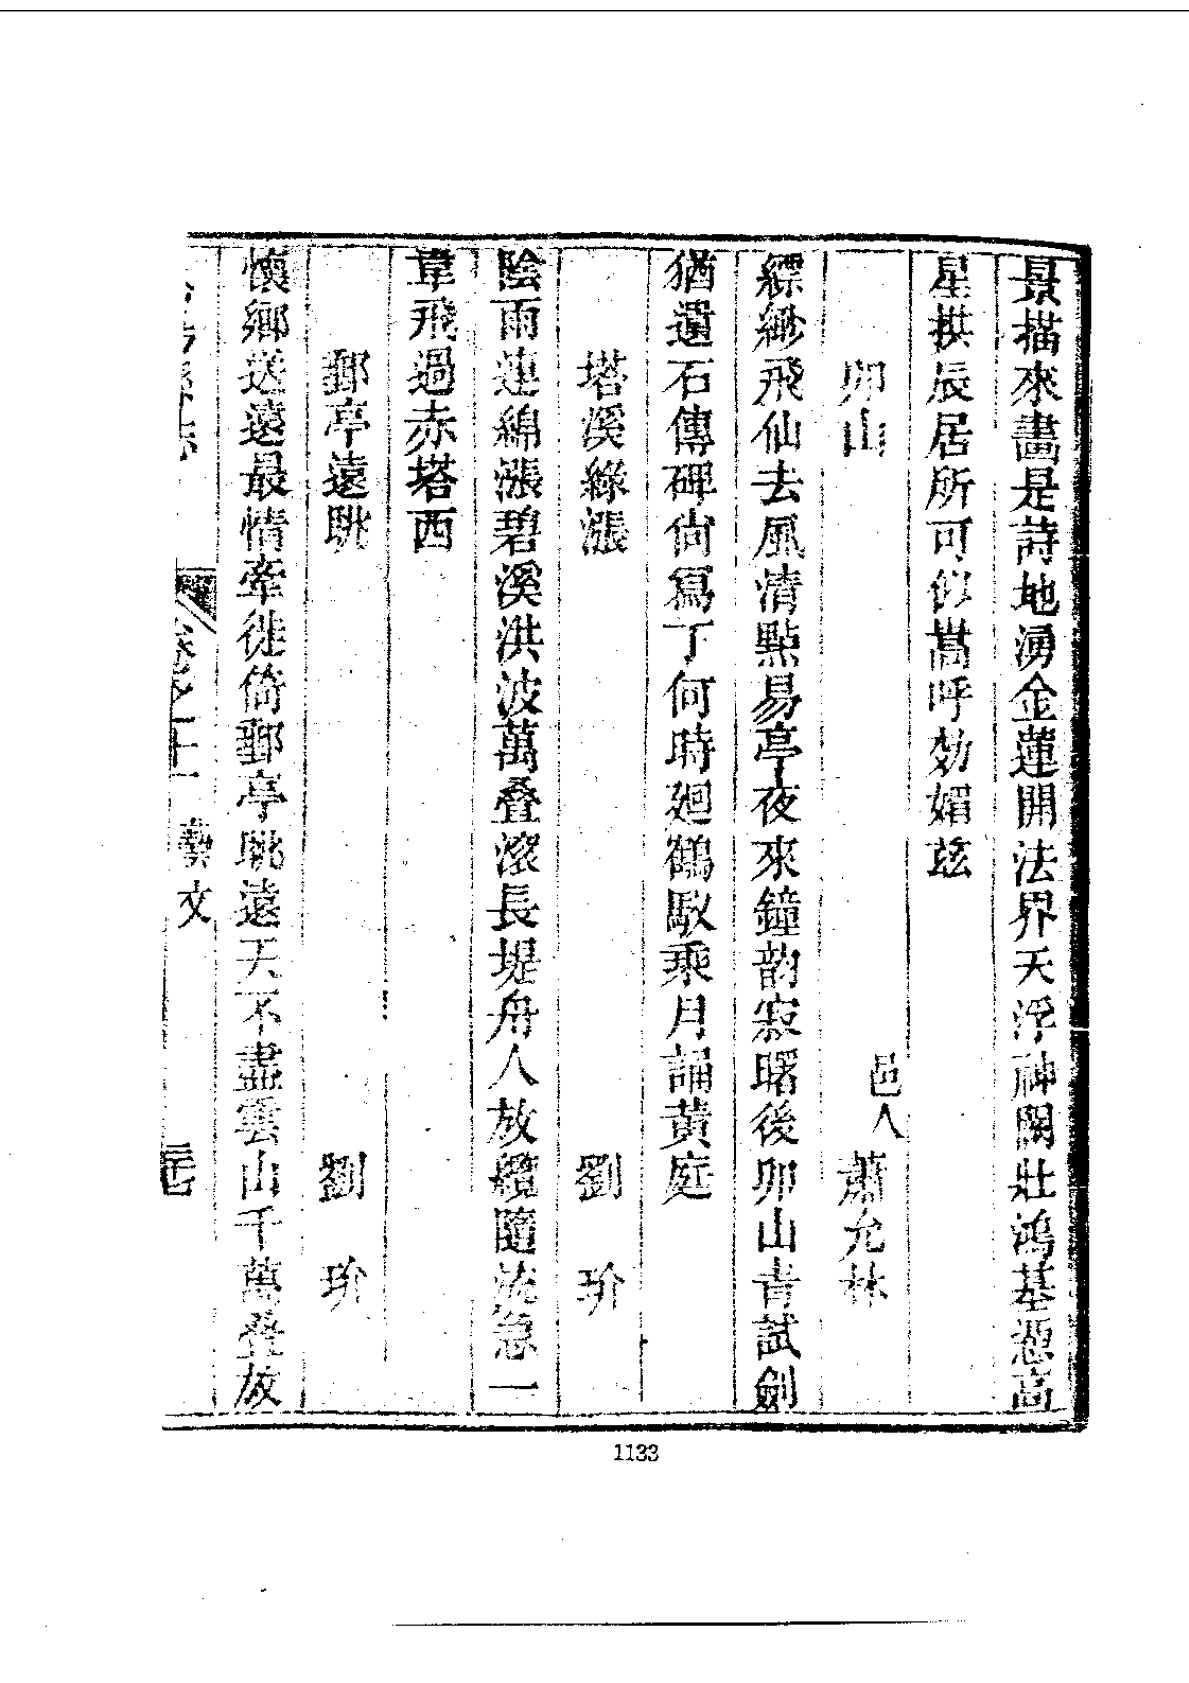 景描來畵是詩地湧金蓮開法界天浮神闕壯鴻基憑高
星拱辰居所可仰嵩呼効媚玆
卯山 邑人 蕭允林
縹緲飛仙去風清點易亭夜來鐘韵寂曙後卯山青試劍
猶遺石傳碑尙寫丁何時廻鶴馭乘月誦黄庭
塔溪綠漲 劉玠
陰雨連綿漲碧溪洪波萬叠滚長堤舟人放纜隨流急一
葦飛過赤塔西
郵亭遠眺 劉玠
懷鄉送遠最情牽徙倚郵亭眺遠天不盡雲山千萬叠故
縣志 卷之十一 藝文
1133